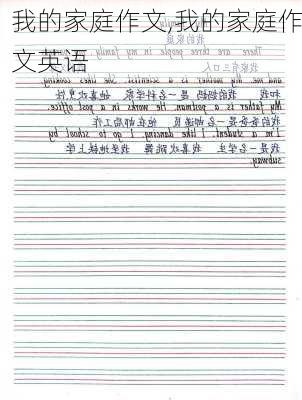 我的家庭作文,我的家庭作
文英语
我的家庭
There are three people in my family
我家有三口人
and me. My mother is a scientist. She likes cooking
和我 我的妈妈是一名科学家 她喜欢烹饪
My father is a postman. He works in a post office.
我的爸爸是一名邮递员 他在邮局工作
I'm a student. I like dancing. I go to school by
我是一名学生 我喜欢跳舞 我坐地铁上学
subway.